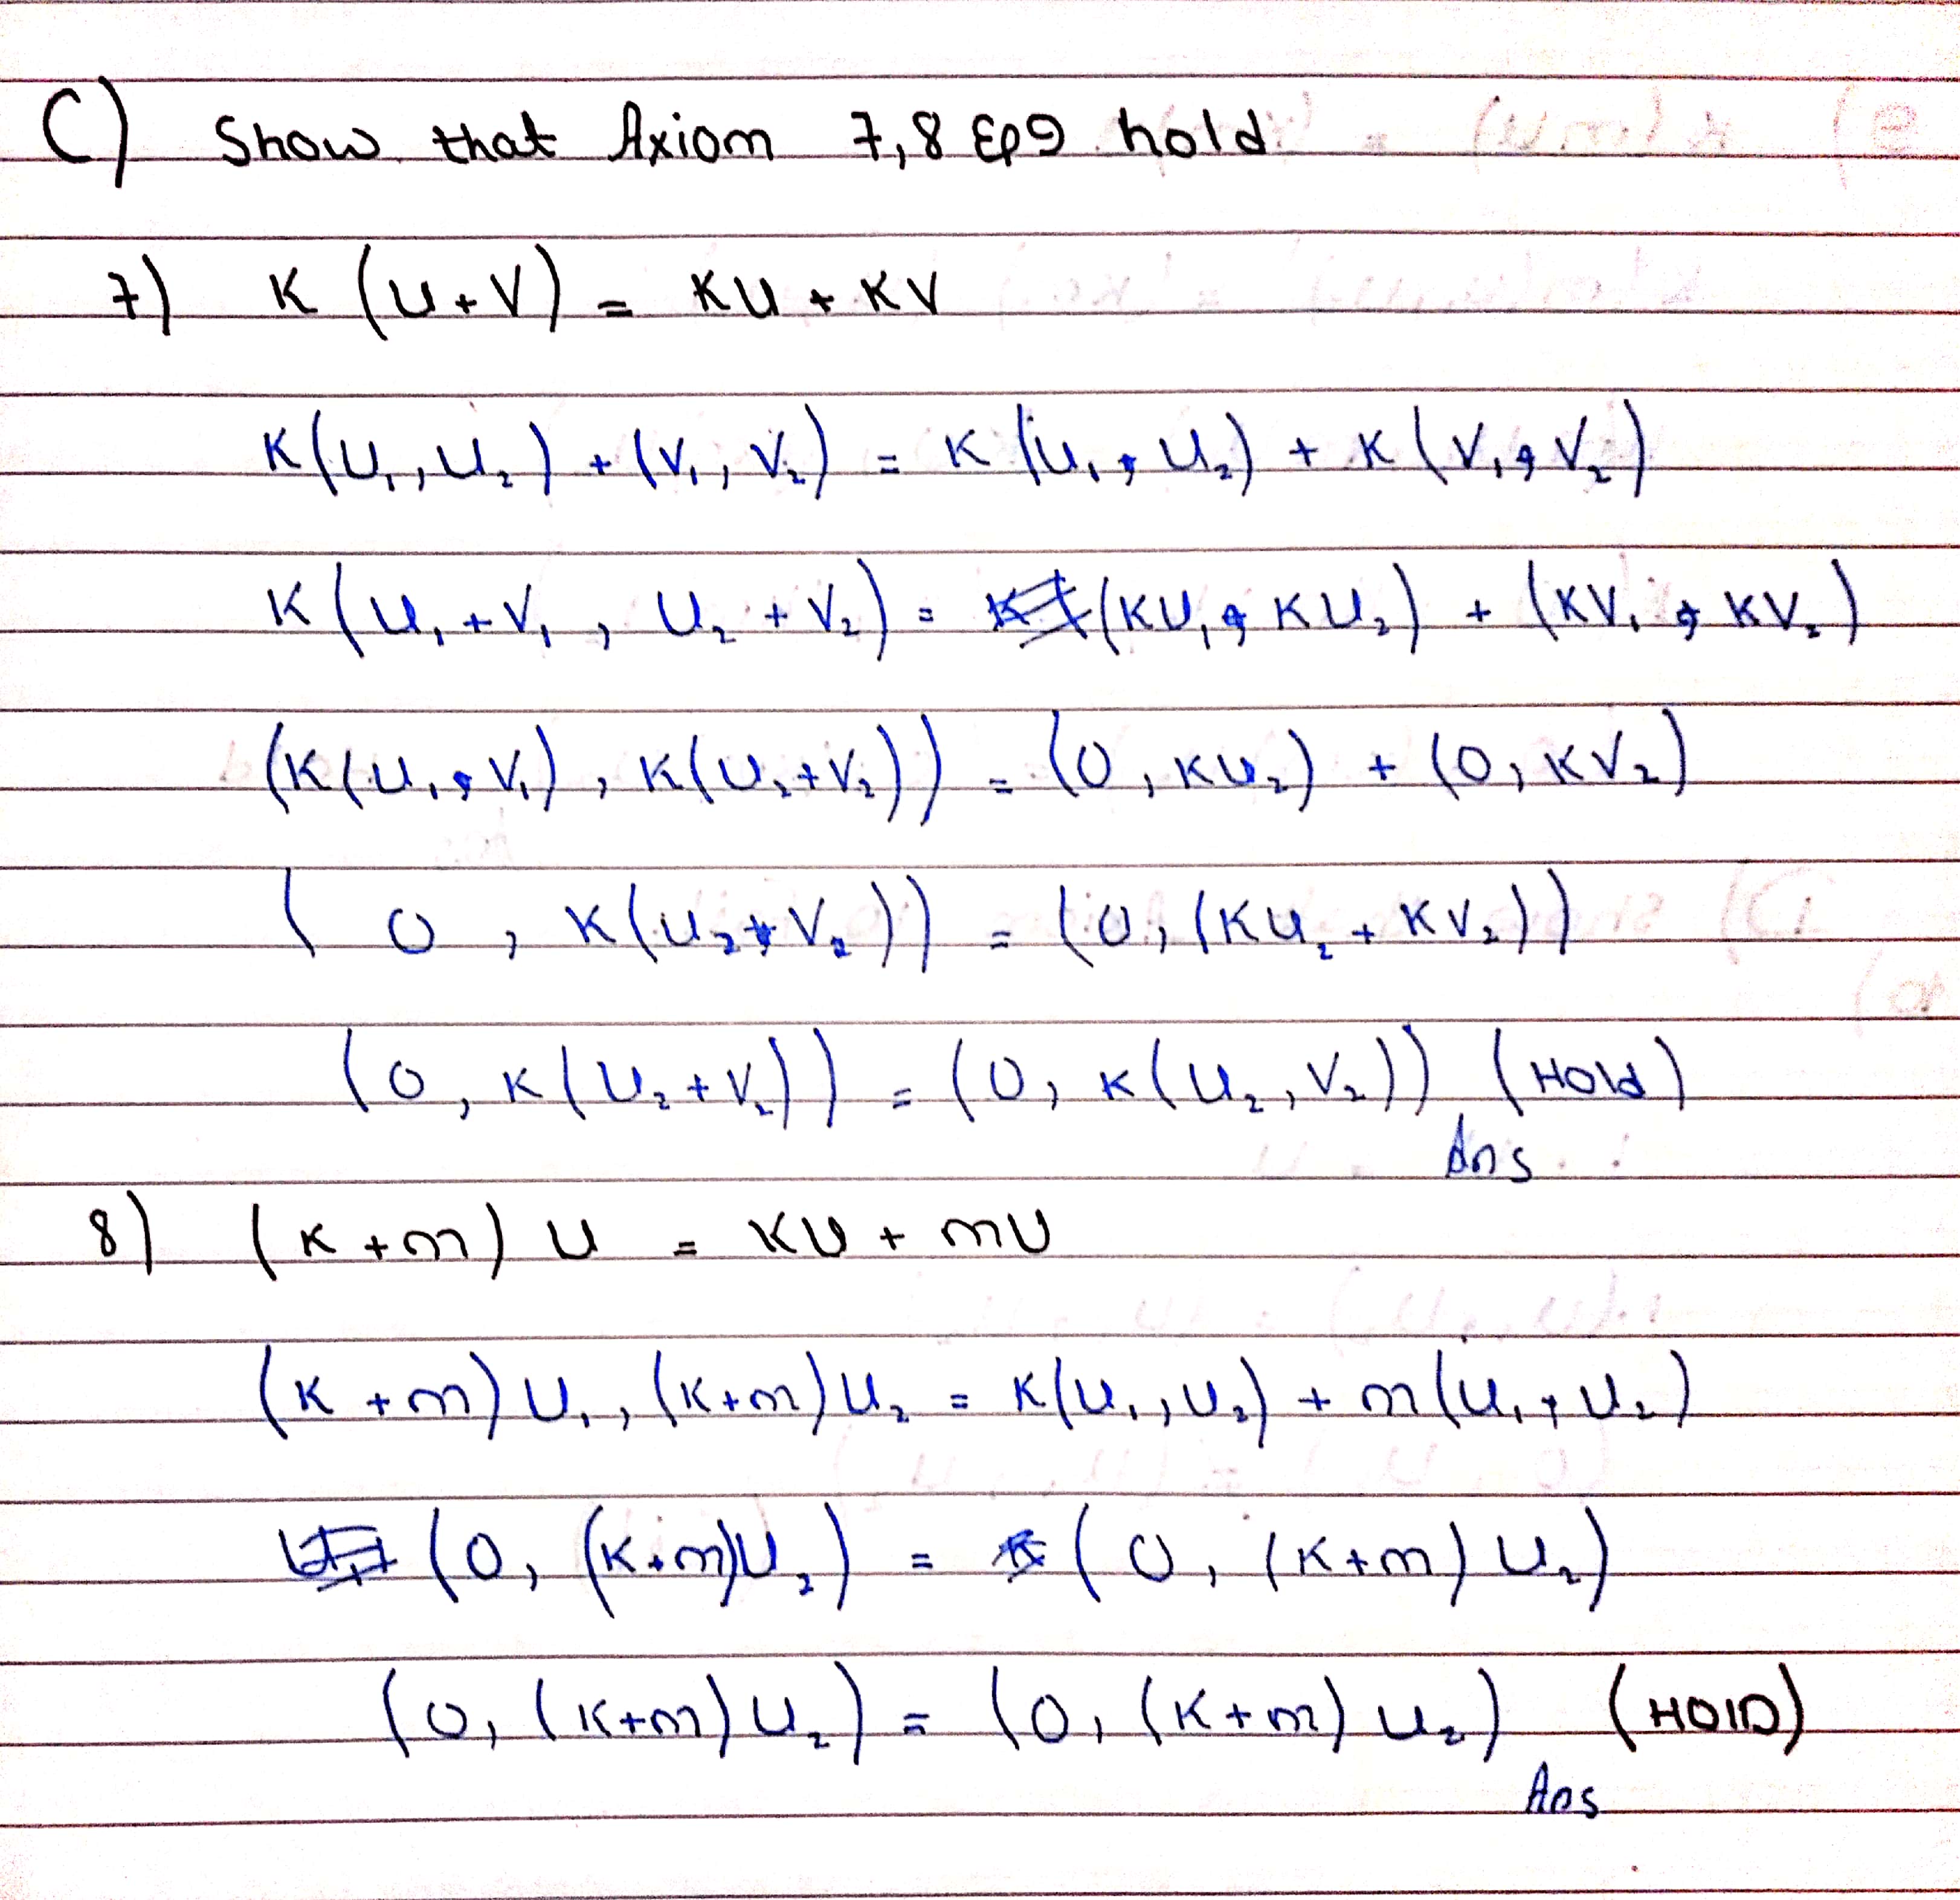 C) Show that Axiom 7,8 & 9 hold
7) K (U + V) = KU + KV
K(U₁, U₂) + (V₁, V₂) = K (U₁, U₂) + K (V₁, V₂)
K(U₁ + V₁, U₂ + V₂) = (KU₁, KU₂) + (KV₁, KV₂)
(K(U₁, V₁), K(U₂+V₂)) = (0, KU₂) + (0, KV₂)
( 0, K(U₂+V₂)) = (0, (KU₂ + KV₂))
(0, K(U₂+V₂)) = (0, K(U₂, V₂)) (HOld)
Ans
8) (K + m) U = KU + mU
(K + m) U₁, (K+m) U₂ = K(U₁, U₂) + m(U₁, U₂)
(0, (K+m)U₂) = (0, (K+m) U₂)
(0, (K+m) U₂) = (0, (K+m) U₂) (HOlD)
Ans